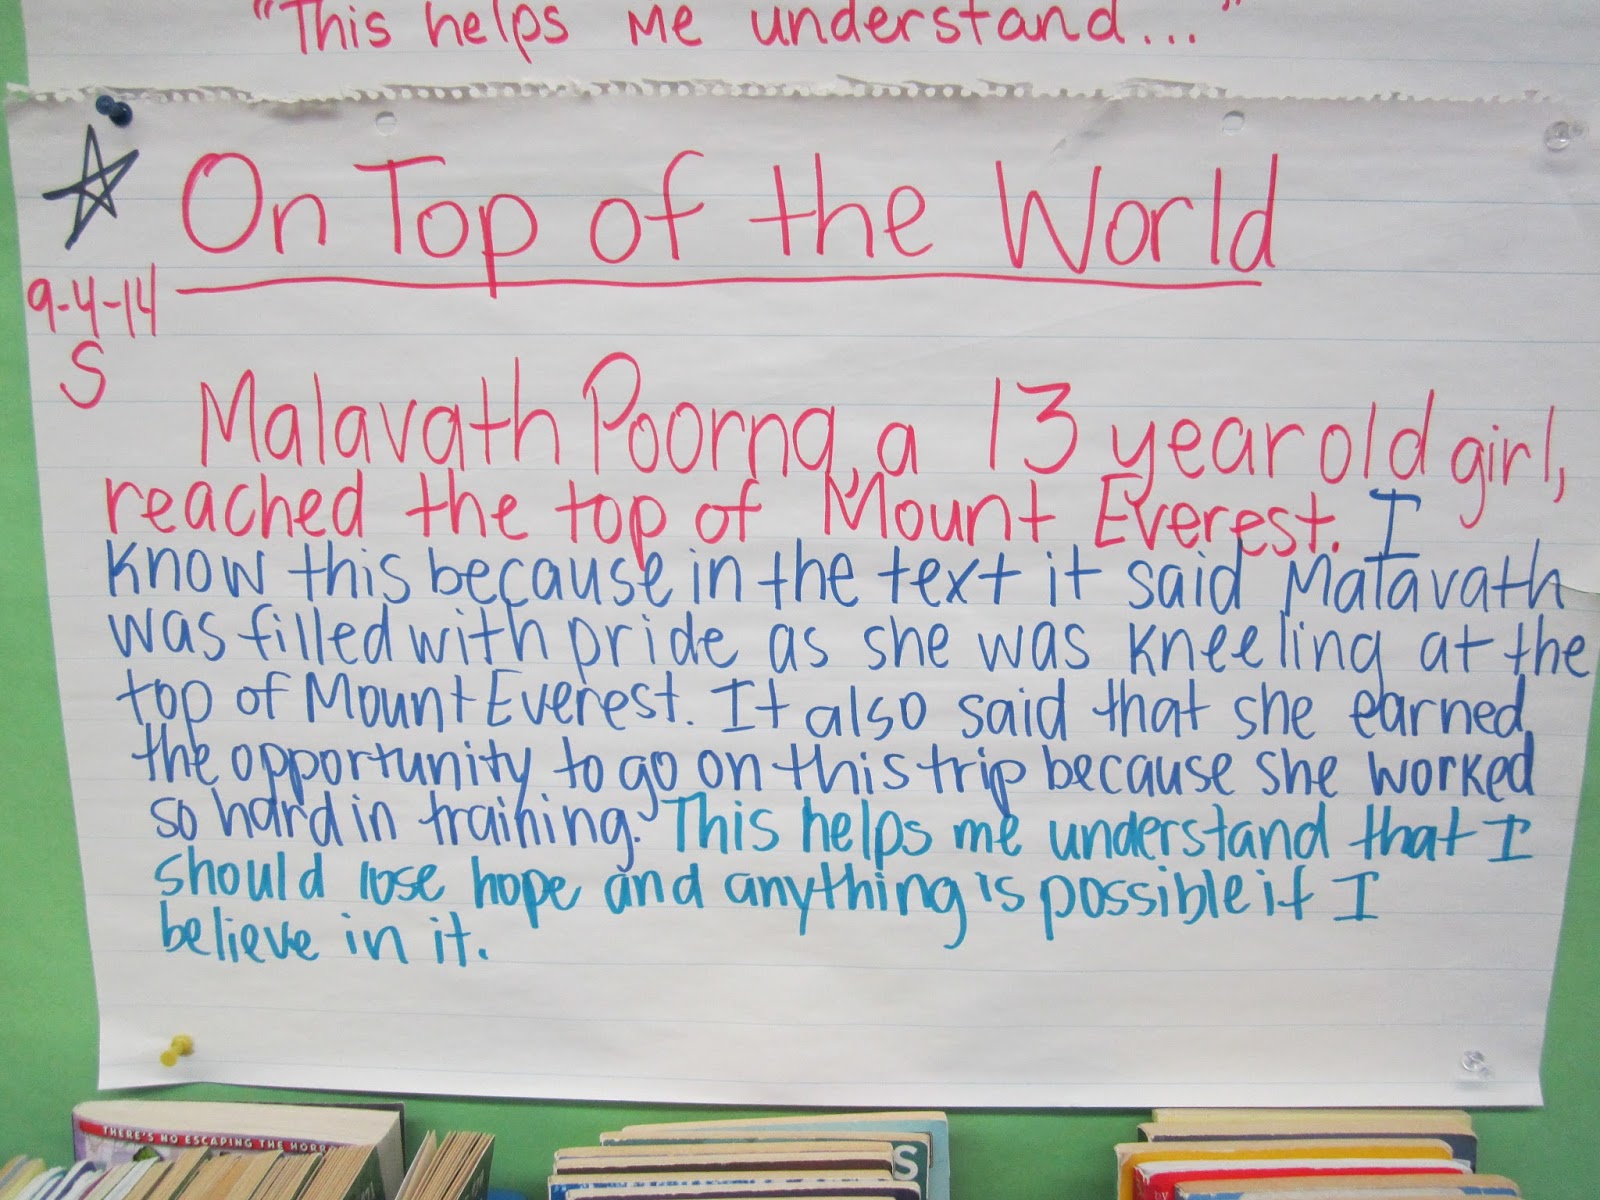 "This helps me understand..."
On Top of the World
9-4-14
S
Malavath Poorna, a 13 year old girl,
reached the top of Mount Everest. I
know this because in the text it said Malavath
was filled with pride as she was kneeling at the
top of Mount Everest. It also said that she earned
the opportunity to go on this trip because she worked
so hard in training. This helps me understand that I
should lose hope and anything is possible if I
believe in it.
THERE'S NO ESCAPING THE
S
BY